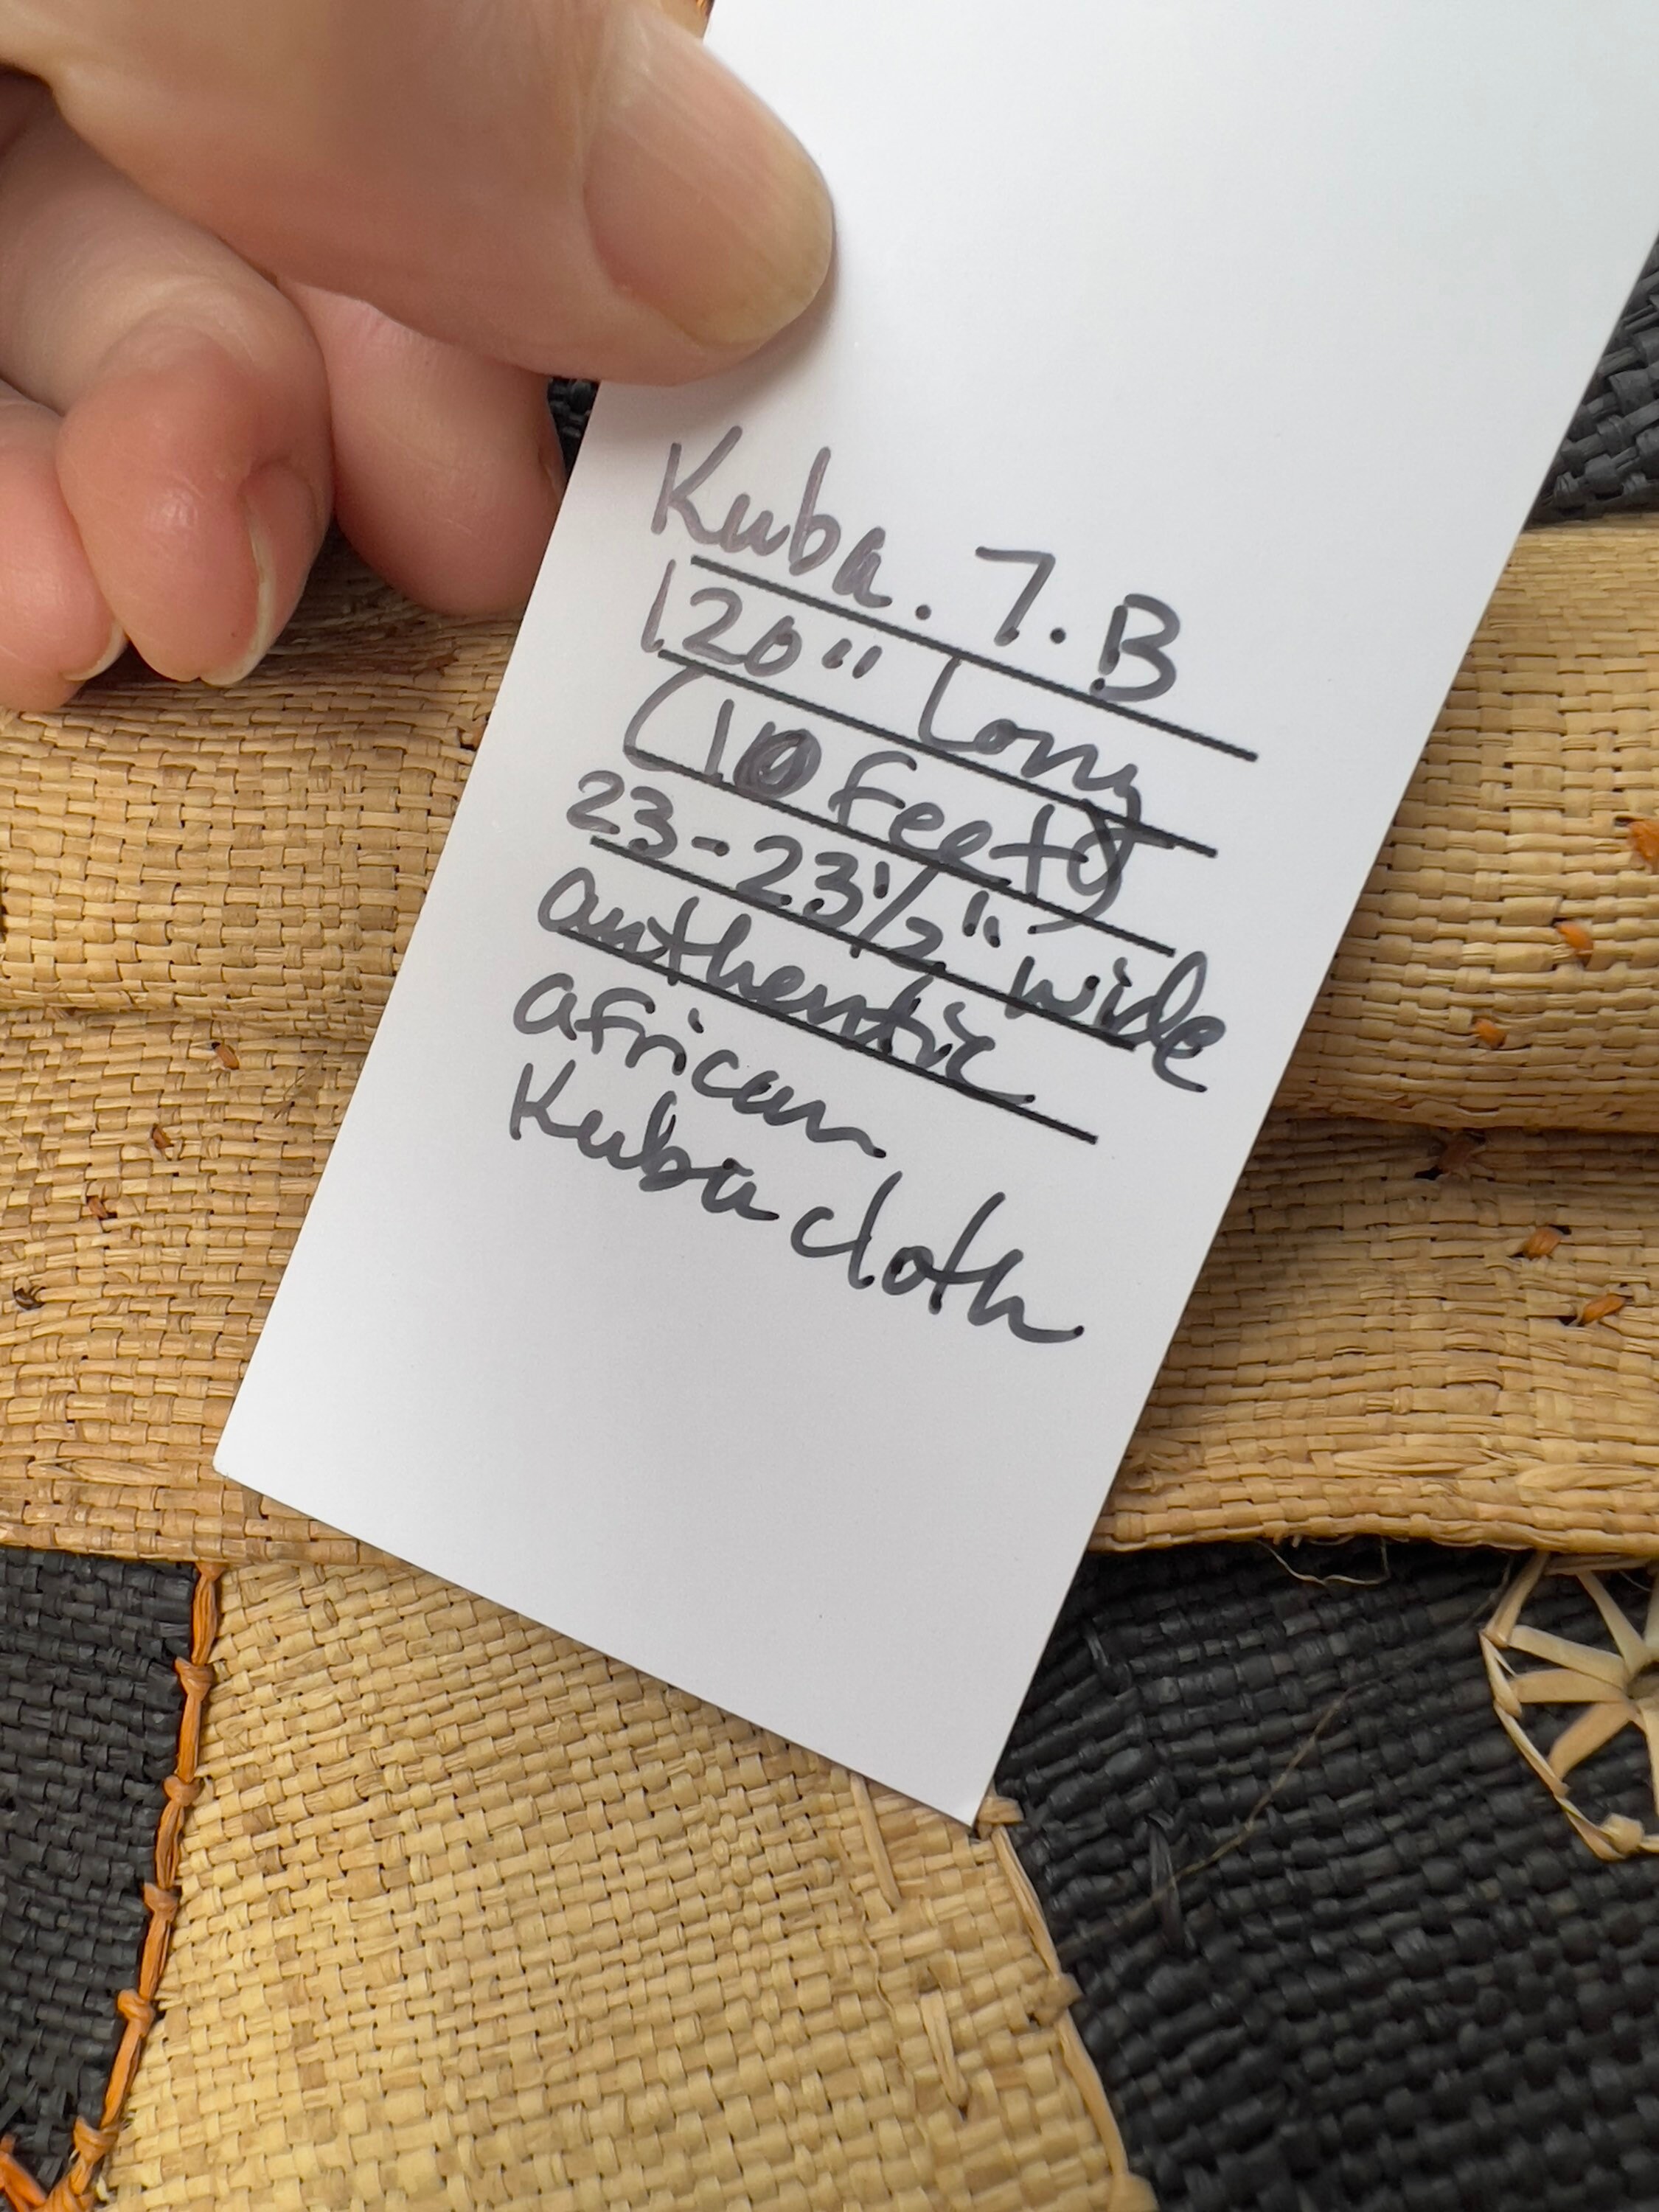 Kuba. 7. B
120" Long
(10 feet)
23-23½" wide
authentic
african
Kuba cloth